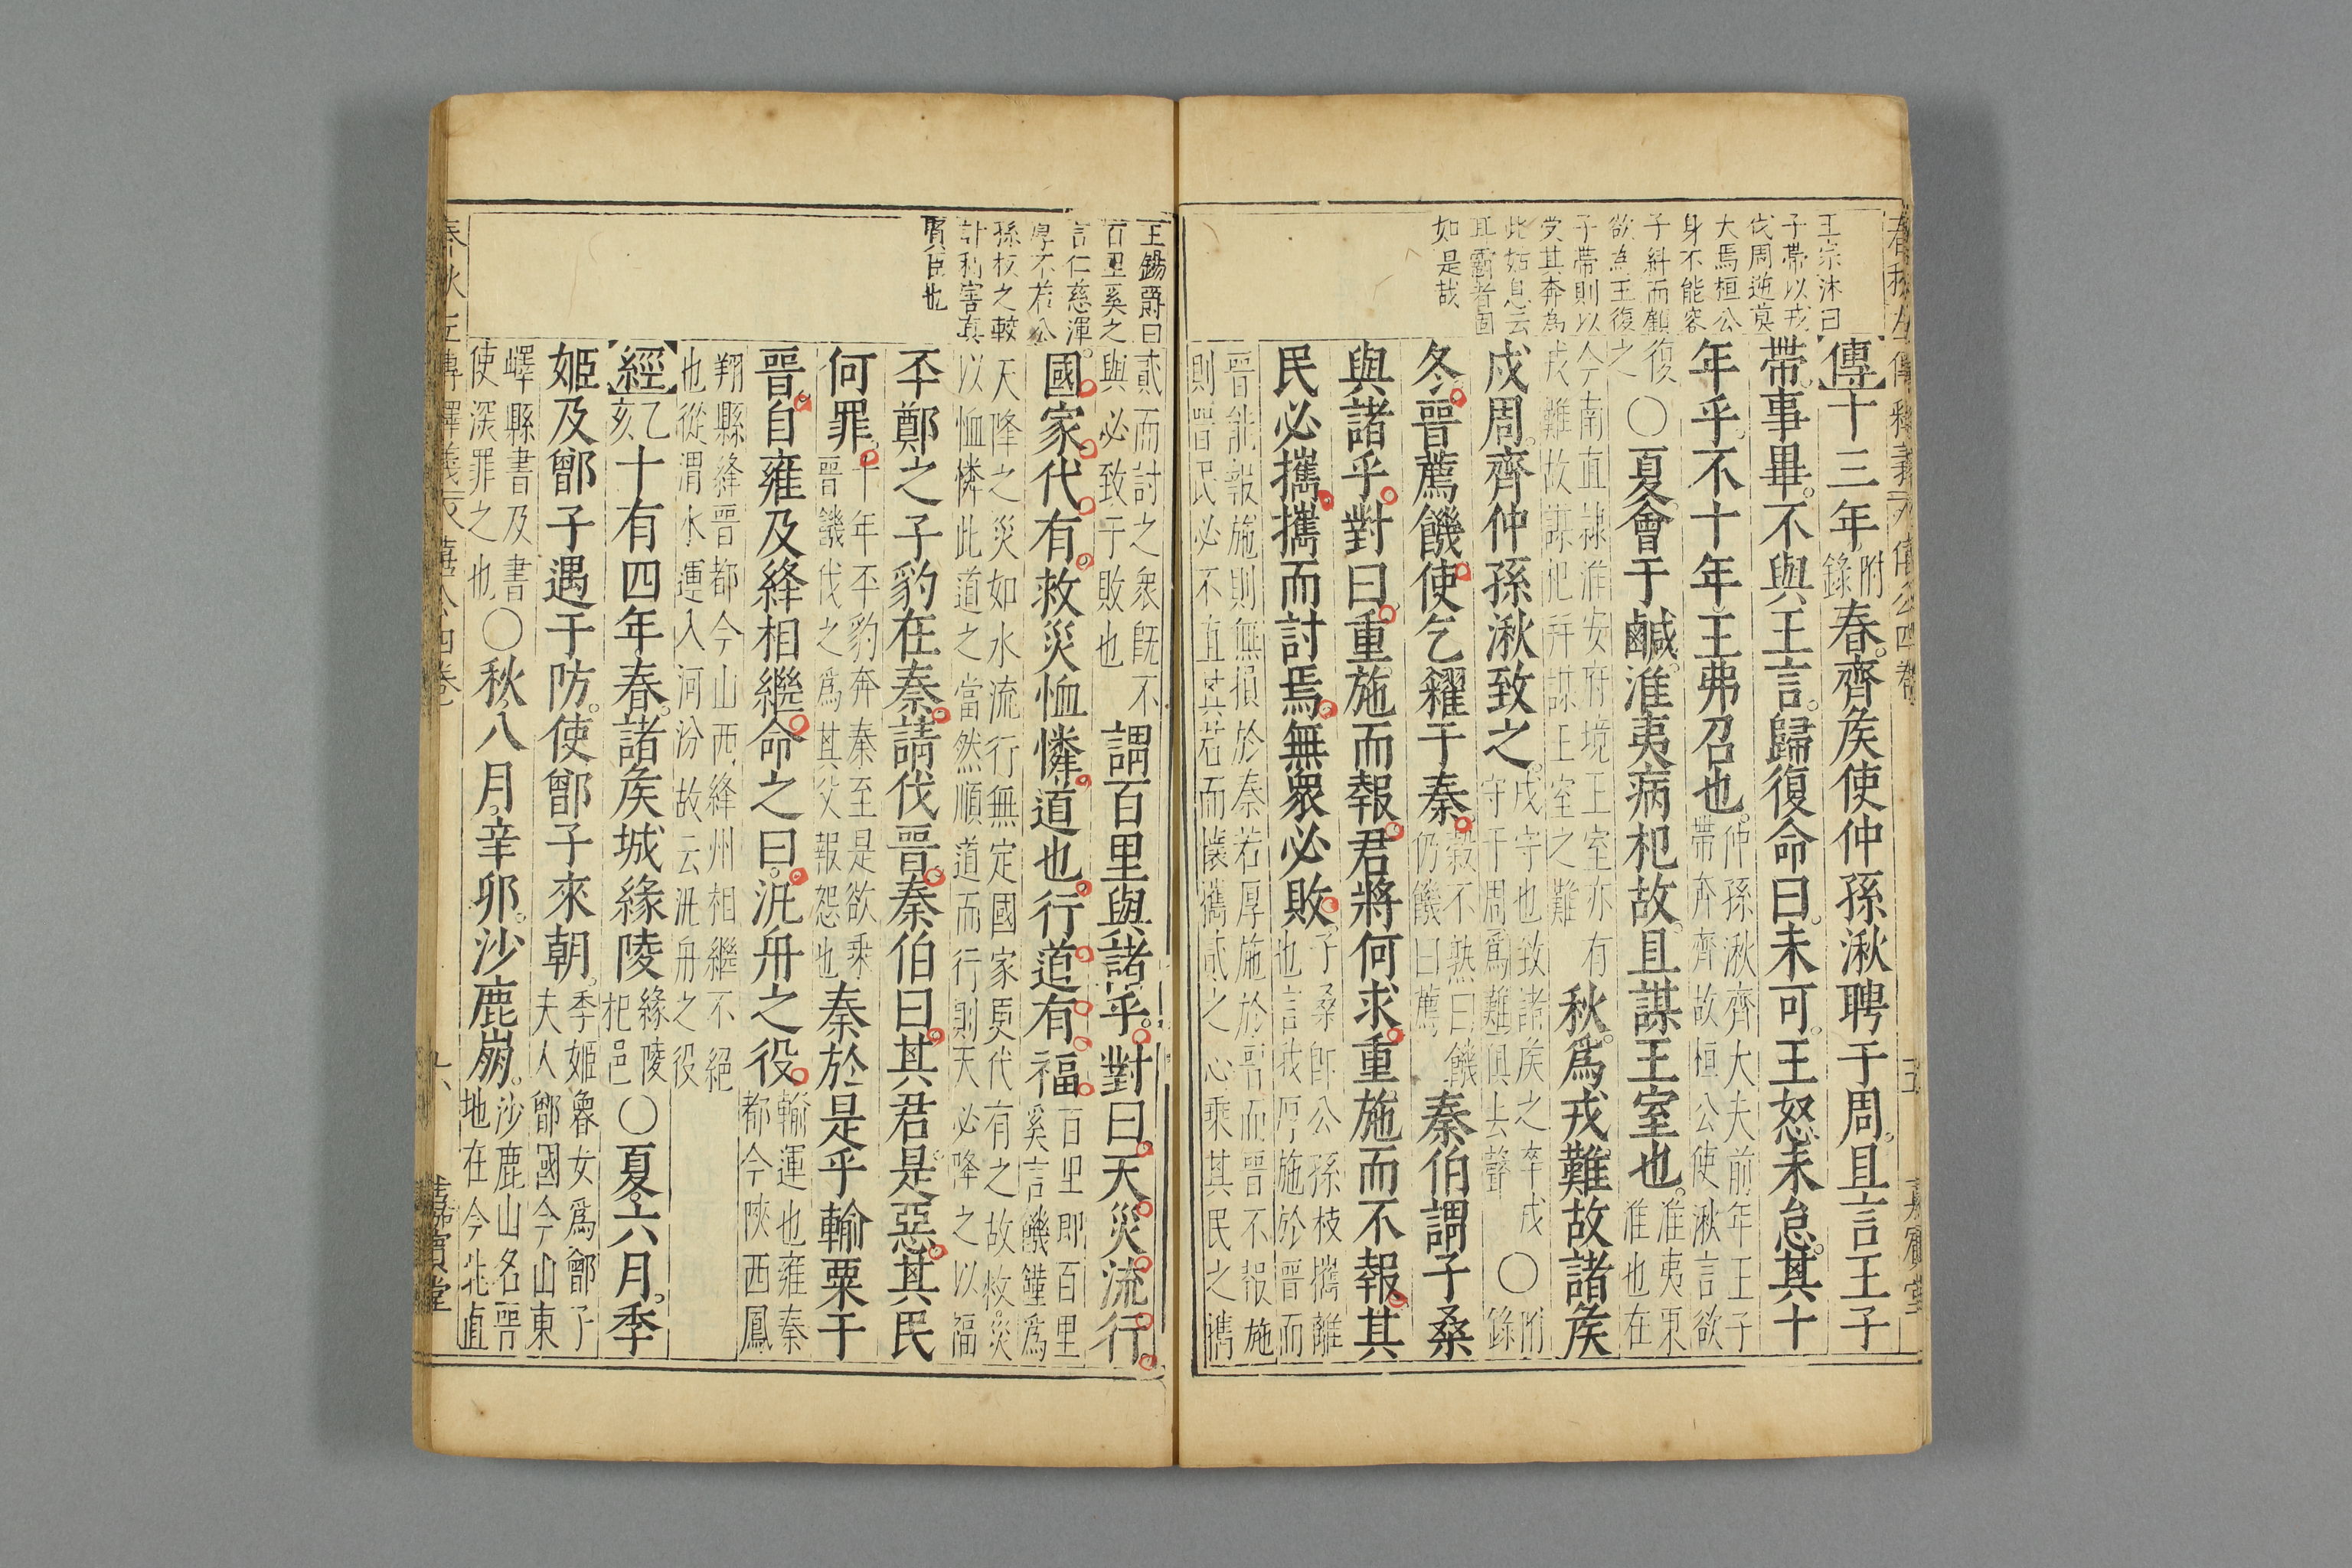 王宗沐曰
子帶以戎
伐周逆莫
大焉桓公
身不能容
子糾而顧
欲為王復
子帶則以
受其奔為
此姑息云
耳霸者固
如是哉
傳十三年附錄春齊矦使仲孫湫聘于周。且言王子
帶。事畢。不與王言。歸復命曰。未可。王怒未怠。其十
年乎。不十年王弗召也。仲孫湫齊大夫前年王子帶奔齊故桓公使湫言欲
復之〇夏會于鹹。淮夷病杞故。且謀王室也。淮夷東淮也在
今南直隷淮安府境王室亦有戎難故謀杞幷謀王室之難秋。爲戎難故諸矦
戍周。齊仲孫湫致之。戍守也致諸矦之卒戍守于周爲難俱去聲〇附錄
冬。晉薦饑。使乞糴于秦。穀不熟曰饑仍饑曰薦秦伯謂子桑
與諸乎。對曰。重施而報。君將何求。重施而不報。其
民必攜。攜而討焉。無衆必敗。子桑即公孫枝攜離也言我厚施於晉而
晉能報施則無損於秦若厚施於晉而晉不報施則晉民必不直其君而懷攜貳之心乘其民之攜
王錫爵曰
百里奚之
言仁慈渾
厚不若公
孫枝之較
計利害真
賓臣也
貳而討之衆旣不與必致于敗也謂百里與諸乎。對曰。天災流行。
國家代有。救災恤憐。道也。行道有福。百里即百里奚言饑饉爲
天降之災如水流行無定國家更代有之故救災以恤憐此道之當然順道而行則天必降之以福
丕鄭之子豹在秦。請伐晉。秦伯曰。其君是惡。其民
何罪。十年丕豹奔秦至是欲乘晉饑伐之爲其父報怨也秦於是乎輸粟于
晉。自雍及絳相繼。命之曰。汎舟之役。輸運也雍秦都今陝西鳳
翔縣絳晉都今山西絳州相繼不絕也從渭水運入河汾故云汎舟之役
經乙亥十有四年春。諸矦城緣陵緣陵杞邑〇夏六月。季
姬及鄫子遇于防。使鄫子來朝。季姬魯女爲鄫子夫人鄫國今山東
嶧縣書及書使深罪之也〇秋八月辛卯。沙鹿崩。沙鹿山名晉地在今北直